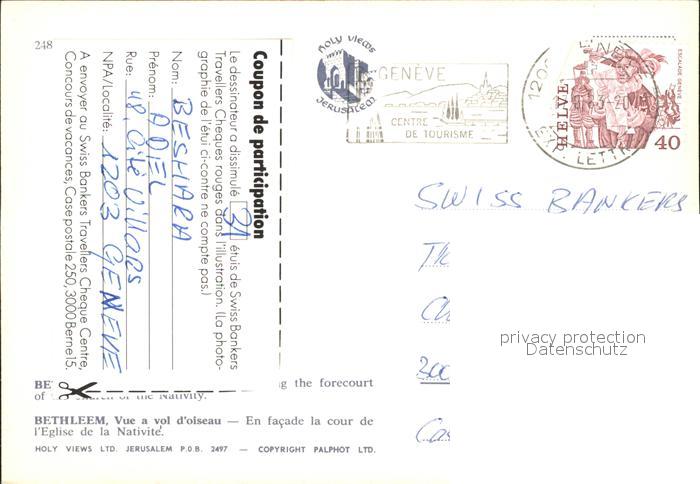 248
HOLY VIEWS
JERUSALEM
GENÈVE
CENTRE
DE TOURISME
ESCALADE GENÈVE
HELVE
40
LETTR
SWISS BANKERS
privacy protection
Datenschutz
Coupon de participation
Le dessinateur a dissimulé 31 étuis de Swiss Bankers
Travellers Cheques rouges dans l'illustration. (La photo-
graphie de l'étui ci-contre ne compte pas.)
Nom: BESHARA
Prénom: ADEL
Rue: 48, Cité Villars
NPA/Localité: 1203 GENEVE
A envoyer au Swiss Bankers Travellers Cheque Centre,
Concours de vacances, Case postale 250, 3000 Berne 15.
the forecourt
of the Nativity.
BETHLEEM, Vue a vol d'oiseau — En façade la cour de
l'Eglise de la Nativité.
HOLY VIEWS LTD. JERUSALEM P.O.B. 2497 — COPYRIGHT PALPHOT LTD.